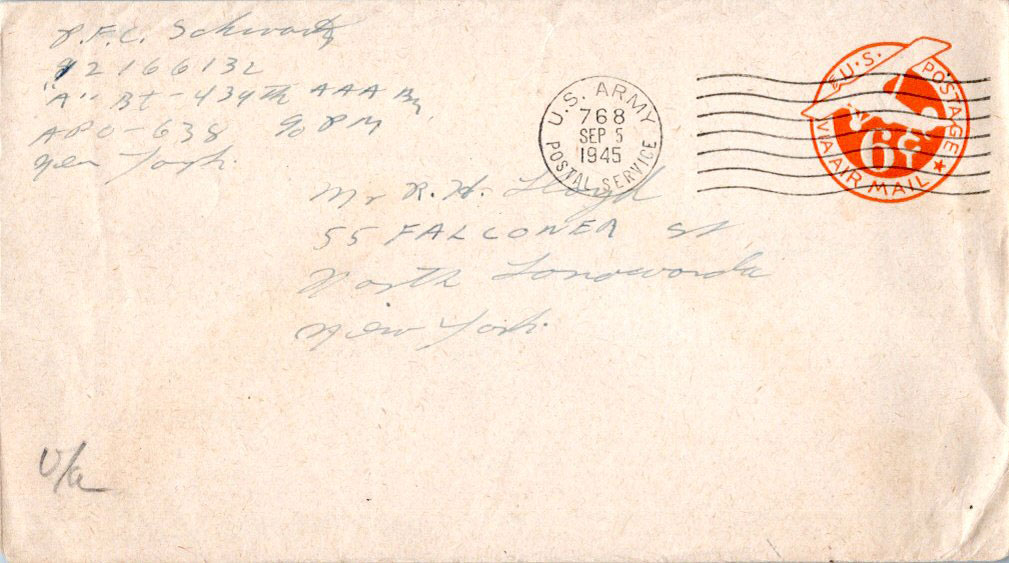 P.F.C. Schwartz
42166132
"A" Bt - 434th AAA Bn
APO - 638 % PM
New York.
U.S. ARMY
768
SEP 5
1945
POSTAL SERVICE
U.S. POSTAGE
6¢
VIA AIR MAIL
Mr R. H. Lloyd
55 FALCONER St.
North Tonawanda
New York.